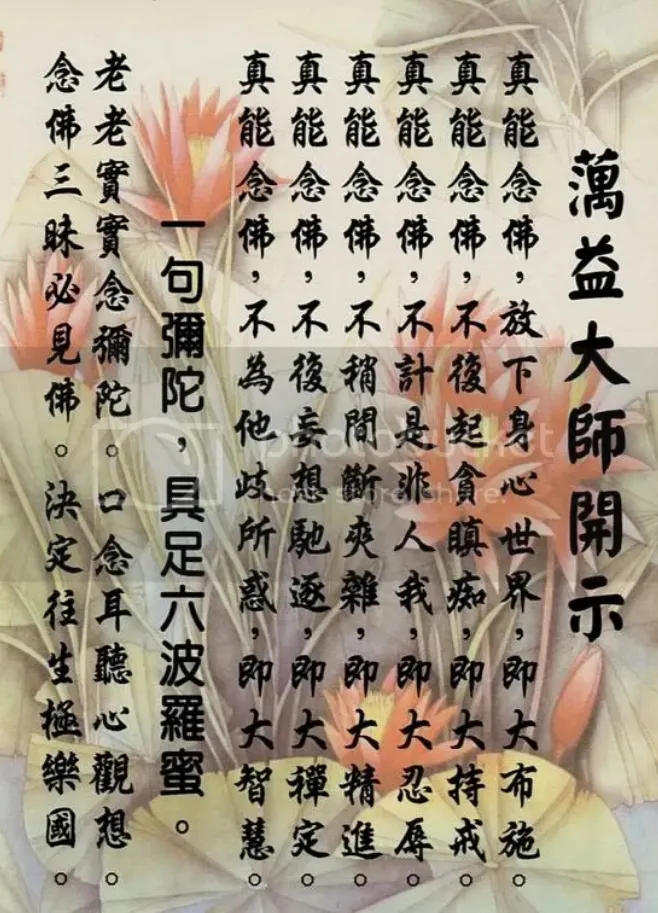 蕅益大師開示
真能念佛，放下身心世界，即大布施。
真能念佛，不復起貪瞋痴，即大持戒。
真能念佛，不計是非人我，即大忍辱。
真能念佛，不稍間斷夾雜，即大精進。
真能念佛，不復妄想馳逐，即大禪定。
真能念佛，不為他歧所惑，即大智慧。
一句彌陀，具足六波羅蜜。
老老實實念彌陀。口念耳聽心觀想。
念佛三昧必見佛。決定往生極樂國。
photobucket